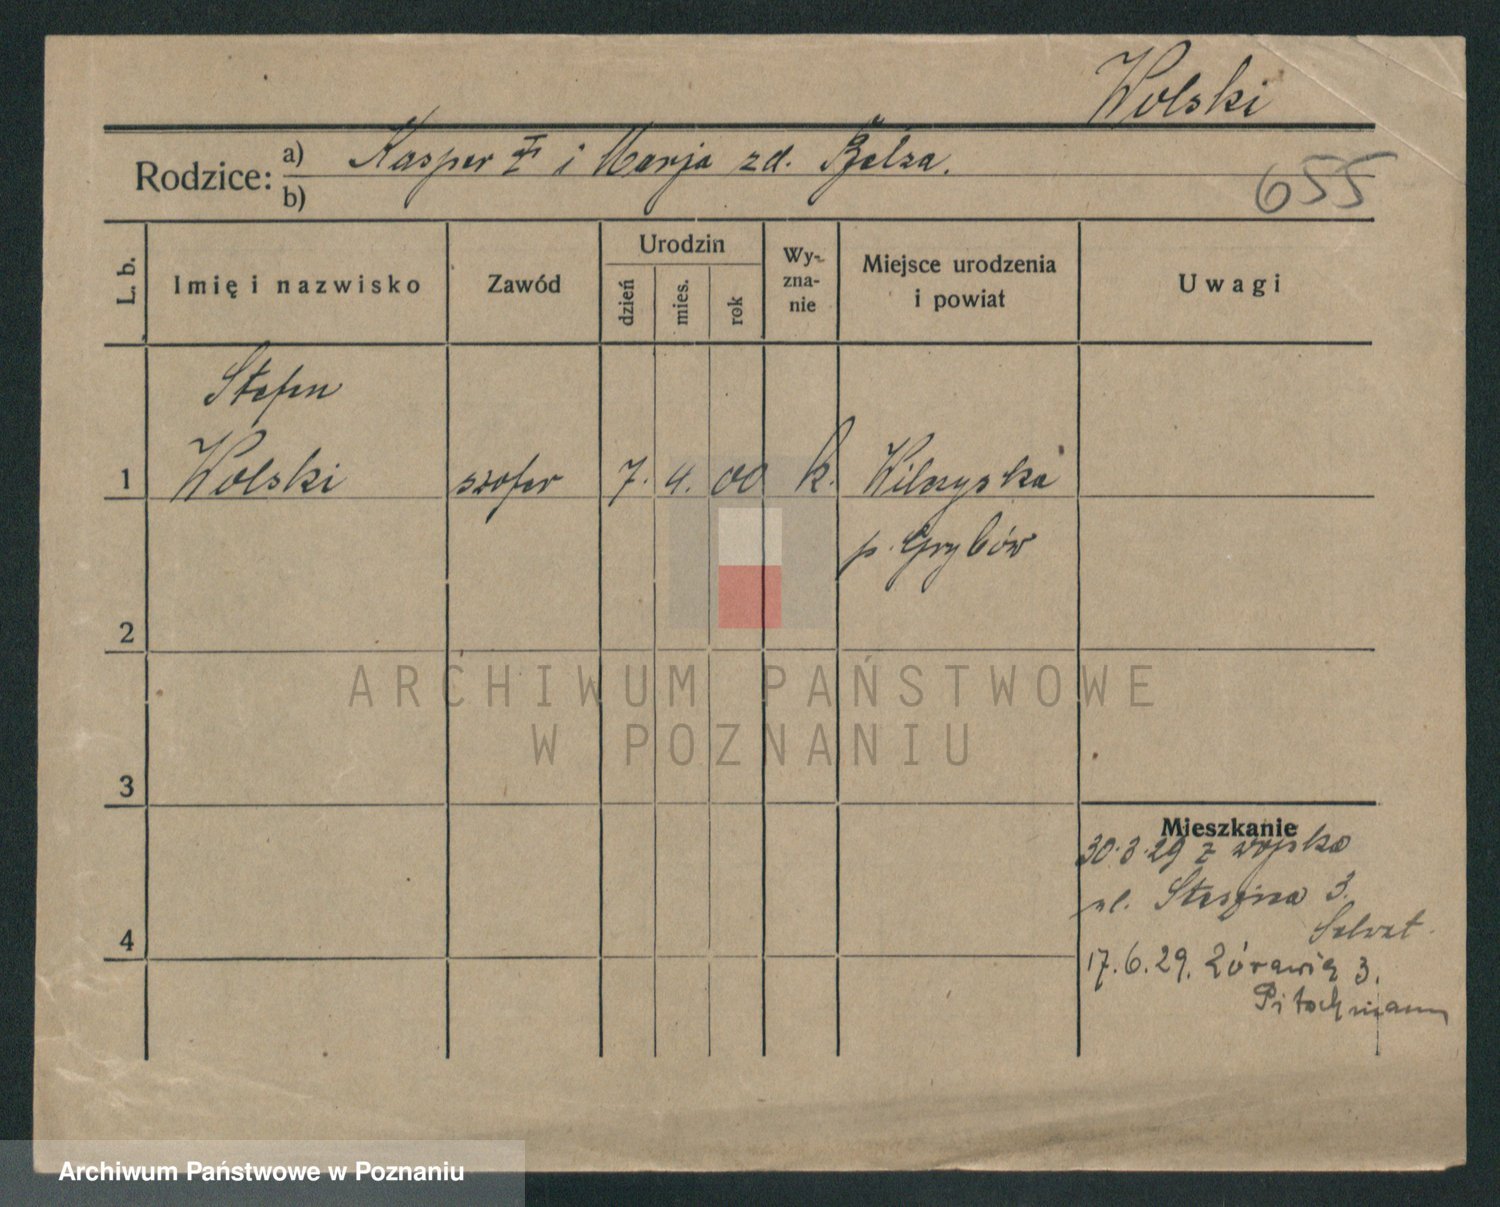 Wolski
Rodzice: a) Kasper i Marja zd. Belza.
b)
655
L. b.
Imię i nazwisko
Zawód
Urodzin
dzień
mies.
rok
Wy-
zna-
nie
Miejsce urodzenia
i powiat
Uwagi
Stefan
1 Wolski szofer 7. 4. 00 k. Wilczyska
p. Grybów
2
ARCHIWUM PAŃSTWOWE
W POZNANIU
3
Mieszkanie
30.3.29 z wojska
ul. 3.
4
17.6.29. Żórawia 3.
Archiwum Państwowe w Poznaniu